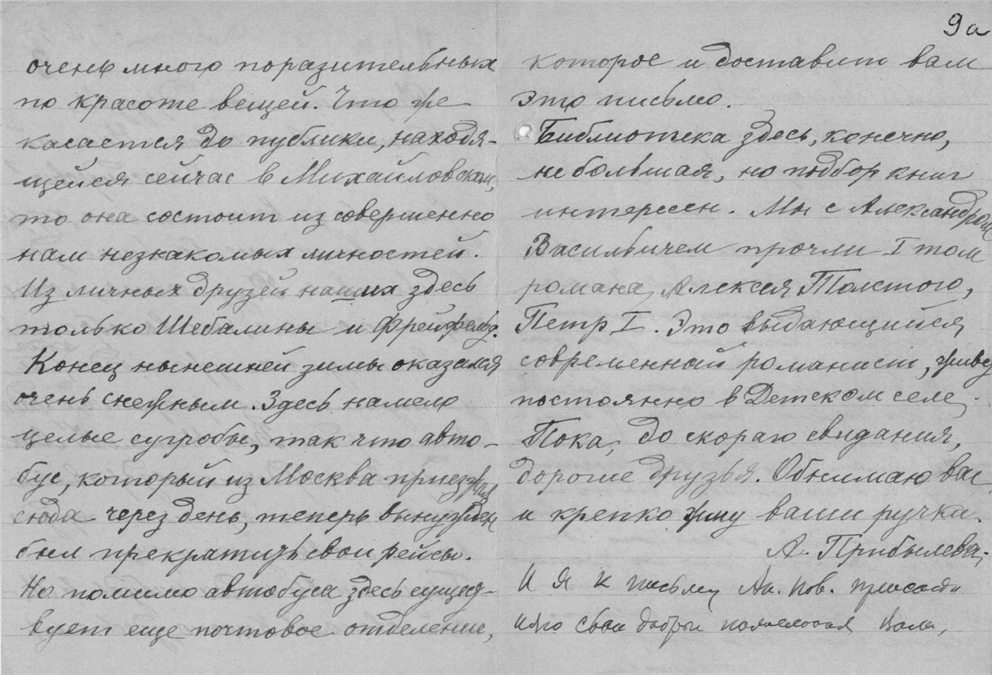 9а
очень много поразительных
по красоте вещей. Что же
касается до публики, находя-
щейся сейчас в Михайловском,
то она состоит из совершенно
нам незнакомых личностей.
Из личных друзей наших здесь
только Шебалины и
Конец нынешней зимы оказался
очень снежным. Здесь намело
целые сугробы, так что авто-
бус, который из Москва приезжал
сюда через день, теперь вынужден
был прекратить свои рейсы.
Но помимо автобуса здесь сущест-
вует еще почтовое отделение,
которое и доставит вам
это письмо.
Библиотека здесь, конечно,
не большая, но подбор книг
интересен. Мы с Александром
Васильичем прочли I том
романа, Алексея Толстого,
Петр I. Это выдающийся
современный романист, живет
постоянно в Детском селе.
Пока, до скораго свидания,
дорогие друзья. Обнимаю вас
и крепко жму ваши ручки.
А. Прибылева.
И я к письму Ан. Пав. присоеди
няю свои добрые пожелания Вам,